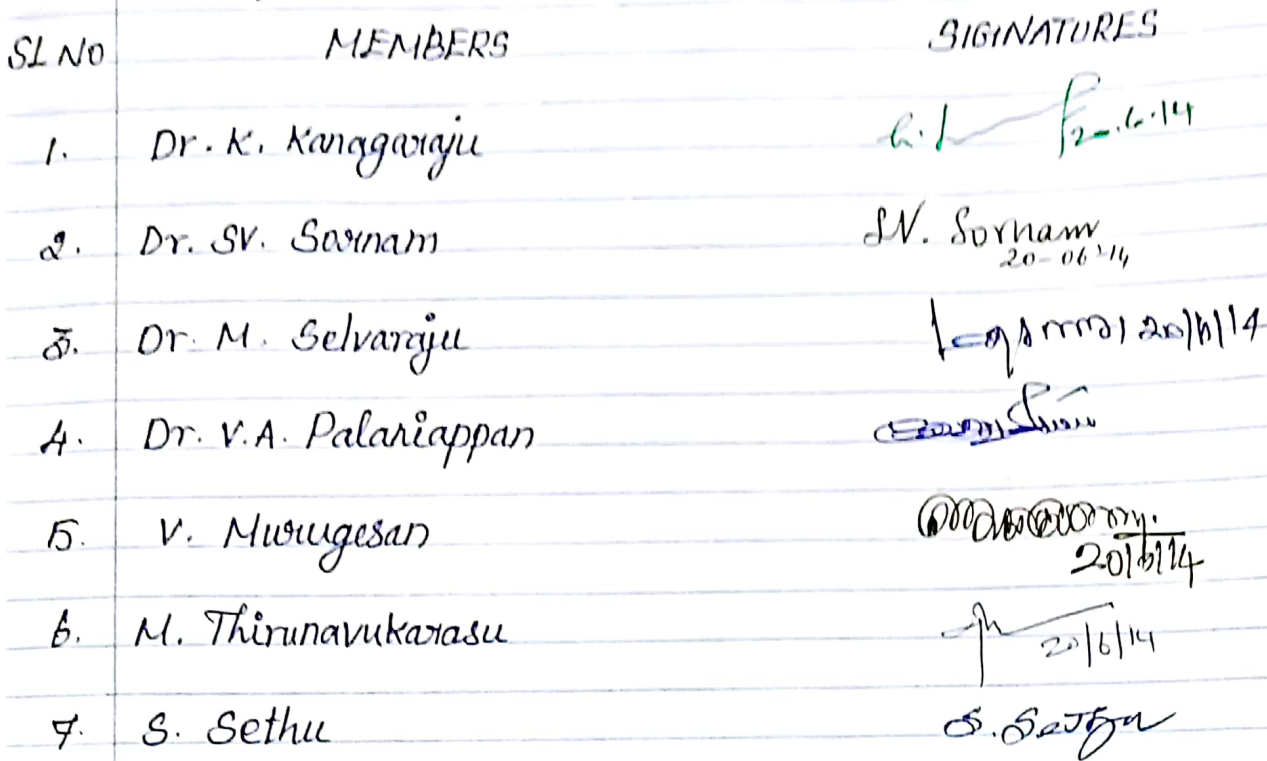 SL NO MEMBERS SIGINATURES
1. Dr. K. Kanagaraju 20.6.14
2. Dr. SV. Sornam SV. Sornam
20-06-14
3. Dr. M. Selvaraju 20/6/14
4. Dr. V.A. Palaniappan
5. V. Murugesan
20/6/14
6. M. Thirunavukarasu 20/6/14
7. S. Sethu